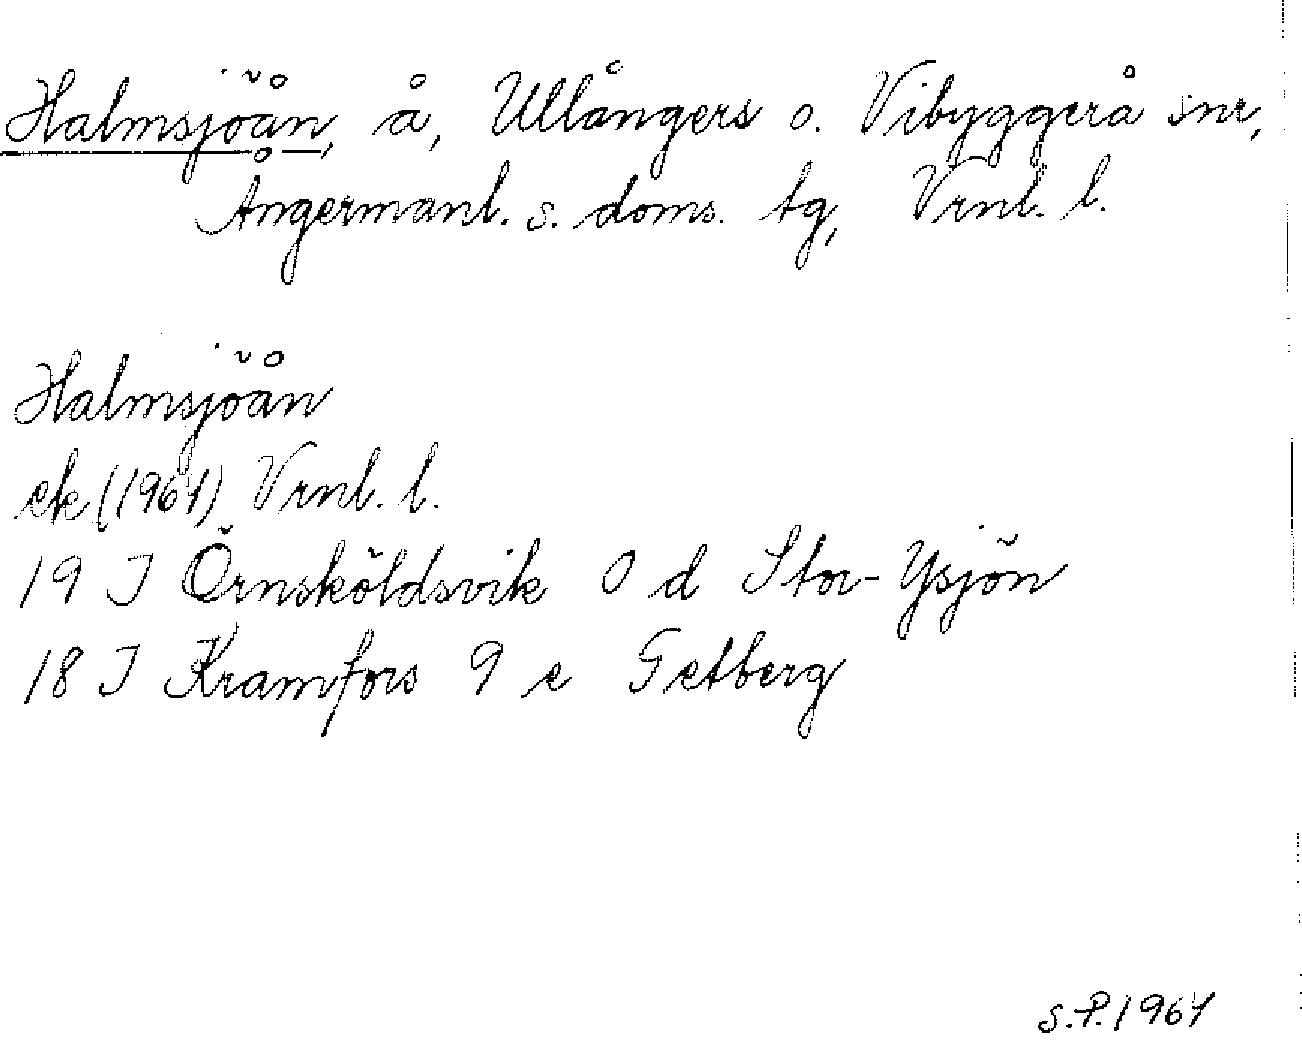 Halmsjöån, å, Ullångers o. Vibyggerå snr,
Ångermanl. s. doms. tg, Vrnl. l.
Halmsjöån
ek (1964) Vrnl. l.
19 J Örnsköldsvik 0 d Stor-Ysjön
18 J Kramfors 9 e Getberg
S.P. 1964